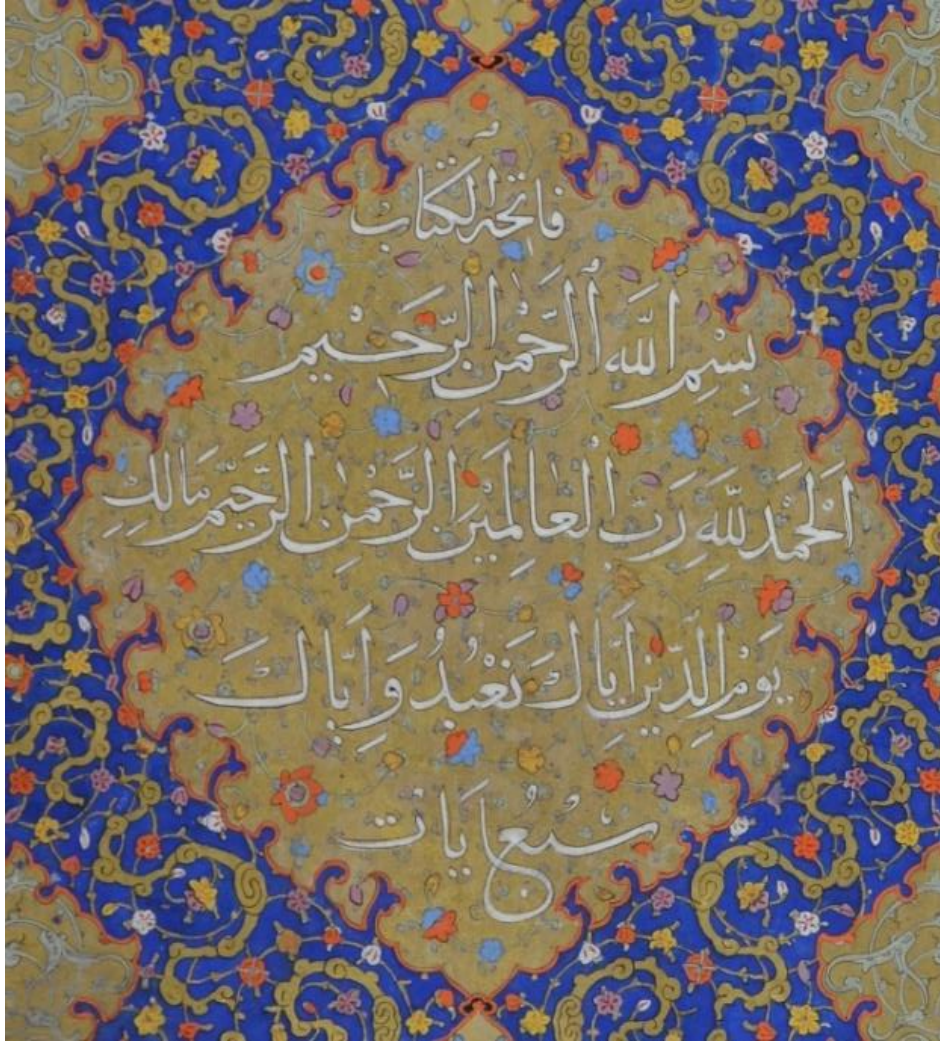 فاتحة الكتاب
بِسْمِ اللَّهِ الرَّحْمٰنِ الرَّحِيْمِ
اَلْحَمْدُ لِلَّهِ رَبِّ الْعَالَمِيْنَ الرَّحْمٰنِ الرَّحِيْمِ مَالِكِ
يَوْمِ الدِّيْنِ اِيَّاكَ نَعْبُدُ وَاِيَّاكَ
سبع ايات